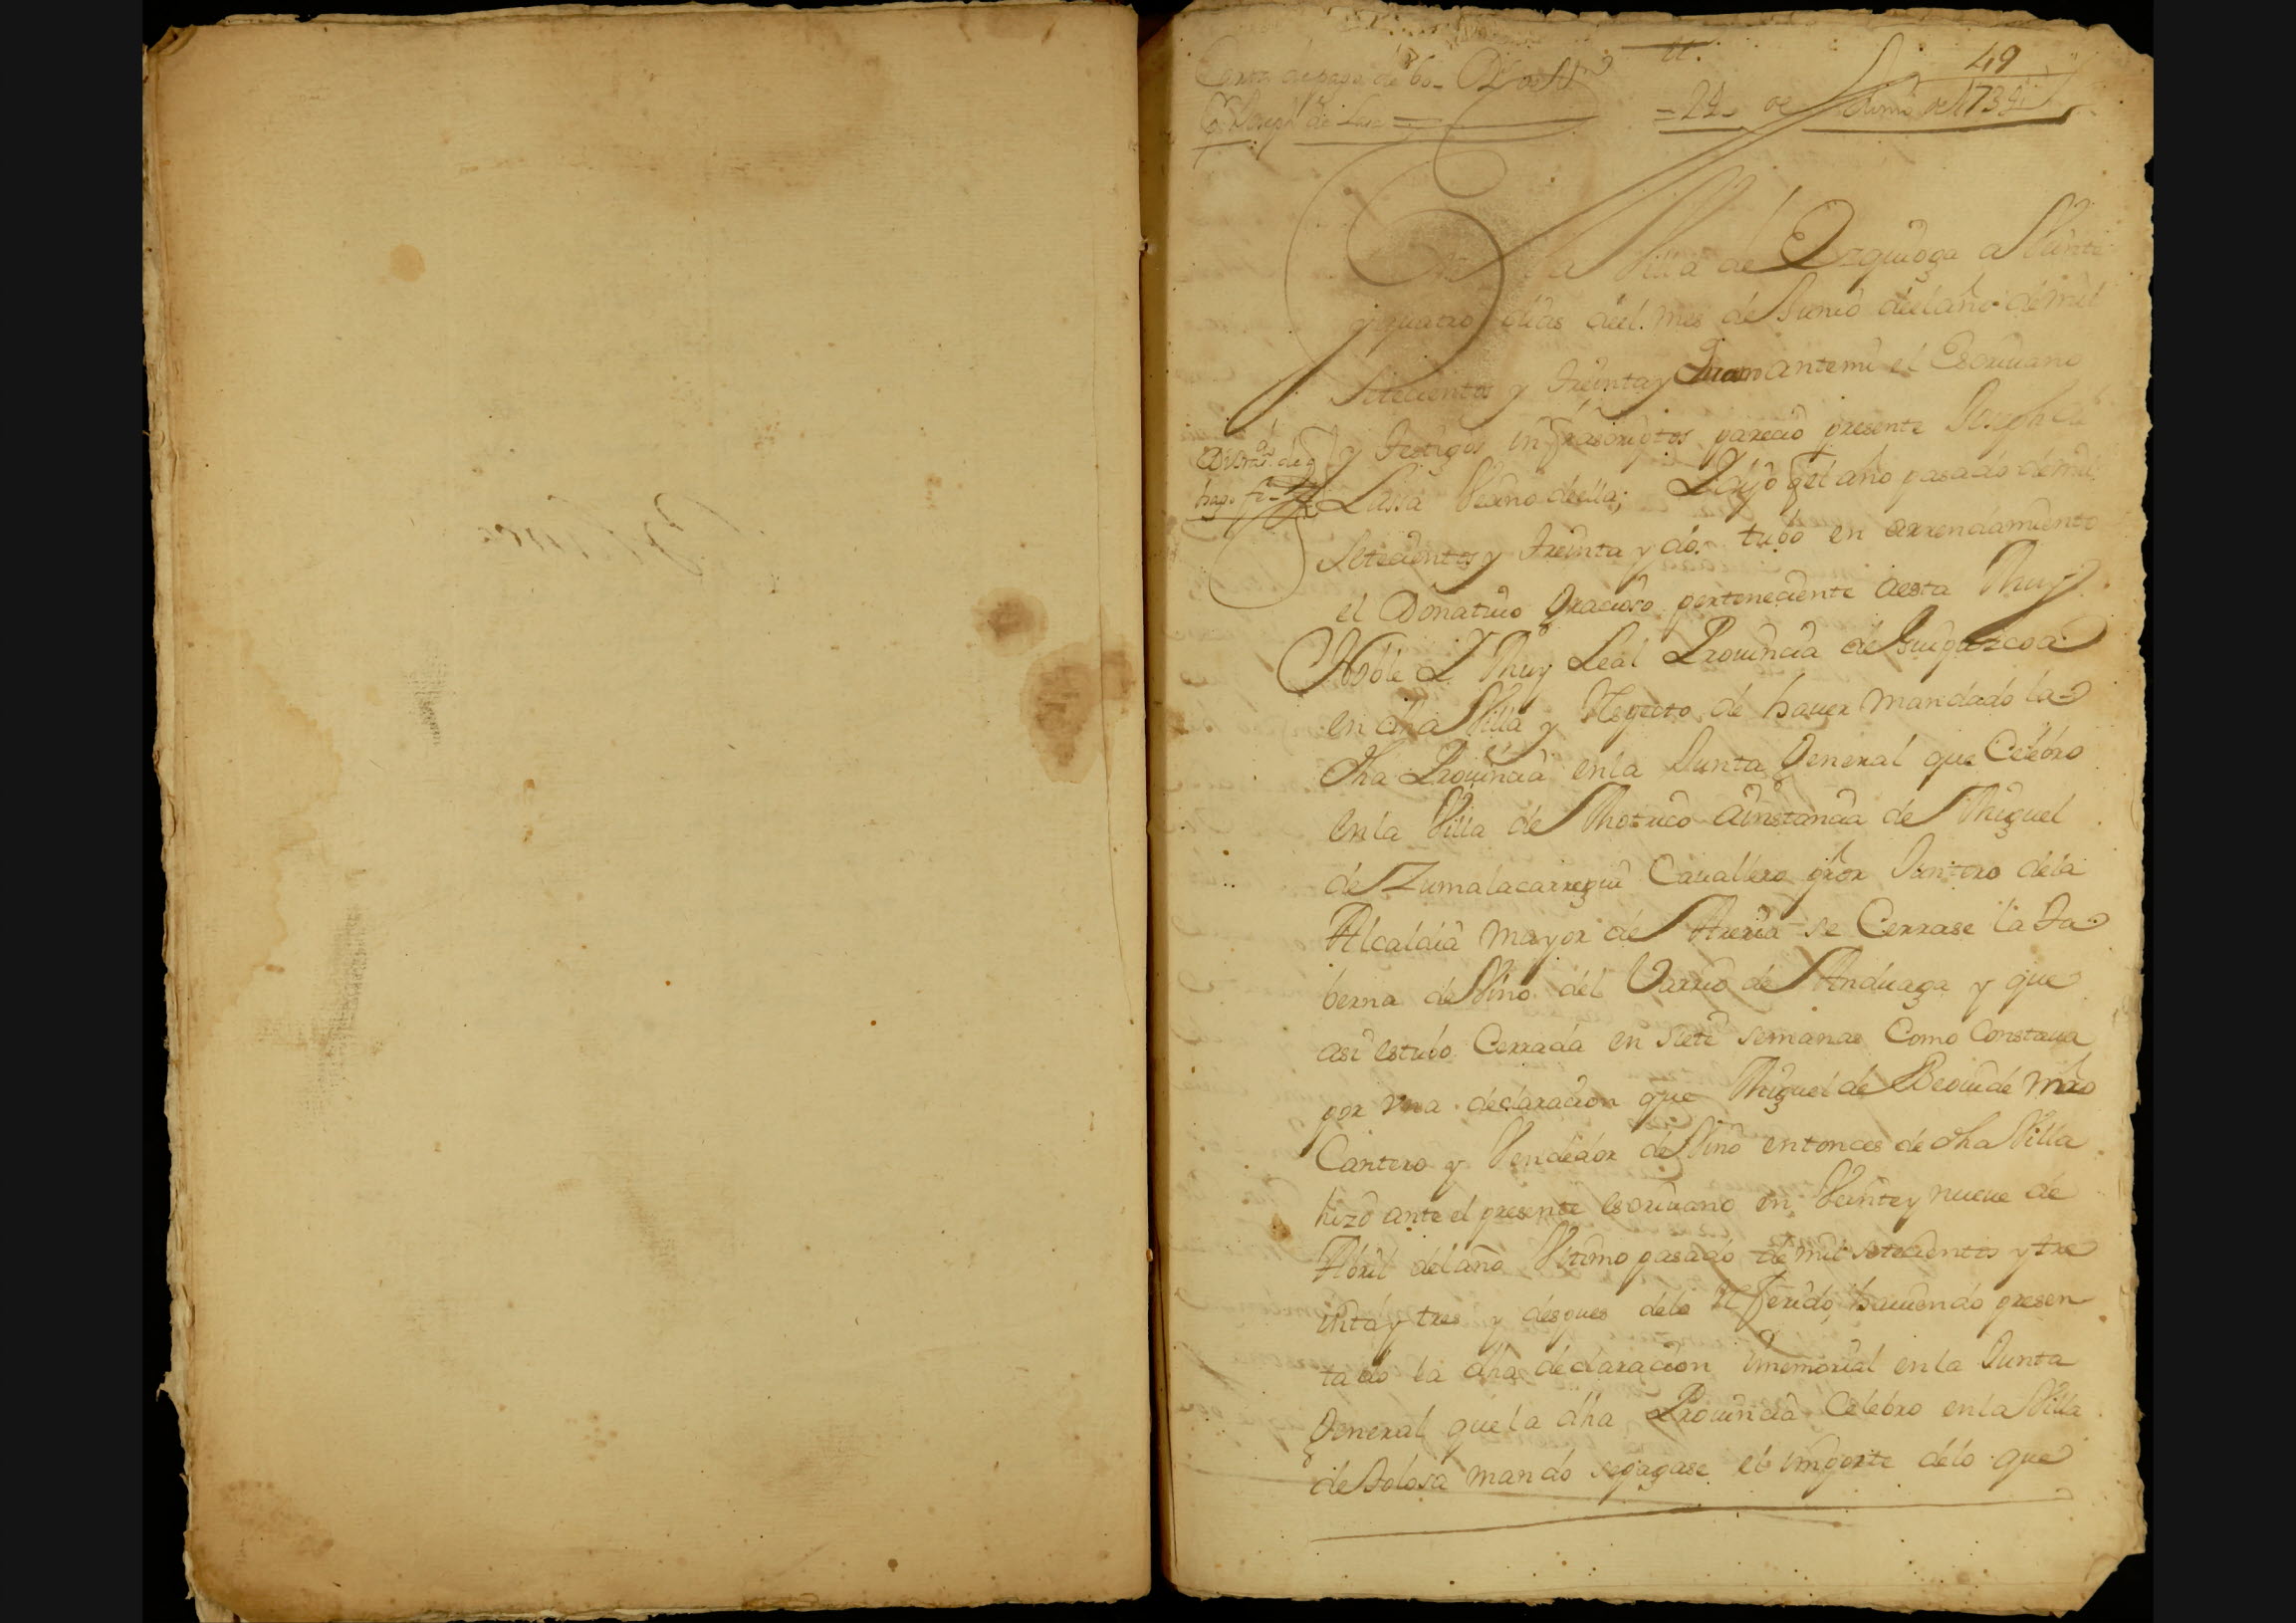 49
Carta de pago de 60
Joseph de Lasa = 24 de Junio de 1734
la Villa de Ezquioga a Veinte
y quatro dias del mes de Junio del año de mil
Setecientos y treinta y Quatro antemi el Escriuano
y testigos infraescriptos parecio presente Joseph de
Lassa Vecino de ella; Dixo q el año pasado de mil
Setecientos y treinta y dos tubo en arrendamiento
el Donatiuo Gracioso perteneciente aesta Muy
Noble Y Muy Leal Prouincia de Guipuzcoa
en dha Villa y Respecto de hauer mandado la
dha Prouincia enla Junta General que Celebro
enla Villa de Motrico ainstancia de Miguel
de Zumalacarregui Cauallero pror Juntero dela
Alcaldia mayor de Areria se Cerrase la Ta
berna de Vino del Varrio de Anduaga y que
asi estubo Cerrada en siete semanas Como Constaua
por vna declaracion que Miguel de Beouide mro
Cantero y Vendedor de Vino entonces de dha Villa
hizo ante el presente escriuano en Veinte y nueue de
Abril del año Vltimo pasado de mil setecientos y tre
inta y tres y despues delo Referido, hauiendo presen
tado la dha declaracion imemorial en la Junta
General que la dha Prouincia Celebro en la Villa
de Tolosa mando sepagase el importe delo que